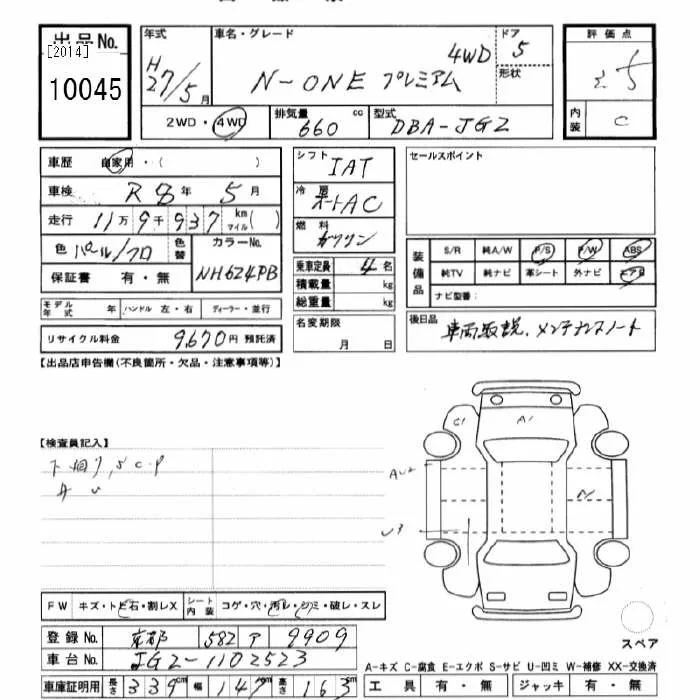 出品No.
[2014]
10045
年式
H27/5月
車名・グレード
N-ONE プレミアム 4WD
ドア 5
形状
評価点
2WD・4WD
排気量 660 cc
型式 DBA-JG2
内装 C
車歴 自家用・( )
車検 R8年5月
走行 11万9千937 km マイル( )
色 パール/クロ
色替
カラーNo. NH624PB
保証書 有・無
シフト IAT
冷房 オートAC
燃料 ガソリン
乗車定員 4名
積載量 kg
総重量 kg
セールスポイント
装備品
S/R 純A/W P/S P/W ABS
純TV 純ナビ 革シート 外ナビ エアB
ナビ型番:
モデル年式 年 ハンドル 左・右 ディーラー・並行
リサイクル料金 9,670円 預託済
名変期限 月 日
後日品 車両取説、メンテナンスノート
【出品店申告欄(不良箇所・欠品・注意事項等)】
【検査員記入】
下廻り,SC.P
A1
C1
AU2
U3
FW キズ・トビ石・割レX
シート内装 コゲ・穴・汚レ・シミ・破レ・スレ
登録No. 京都 582 ア 9909
車台No. JG2-1102523
車庫証明用 長さ 339cm 幅 147cm 高さ 163cm
スペア
A-キズ C-腐食 E-エクボ S-サビ U-凹ミ W-補修 XX-交換済
工具 有・無 ジャッキ 有・無